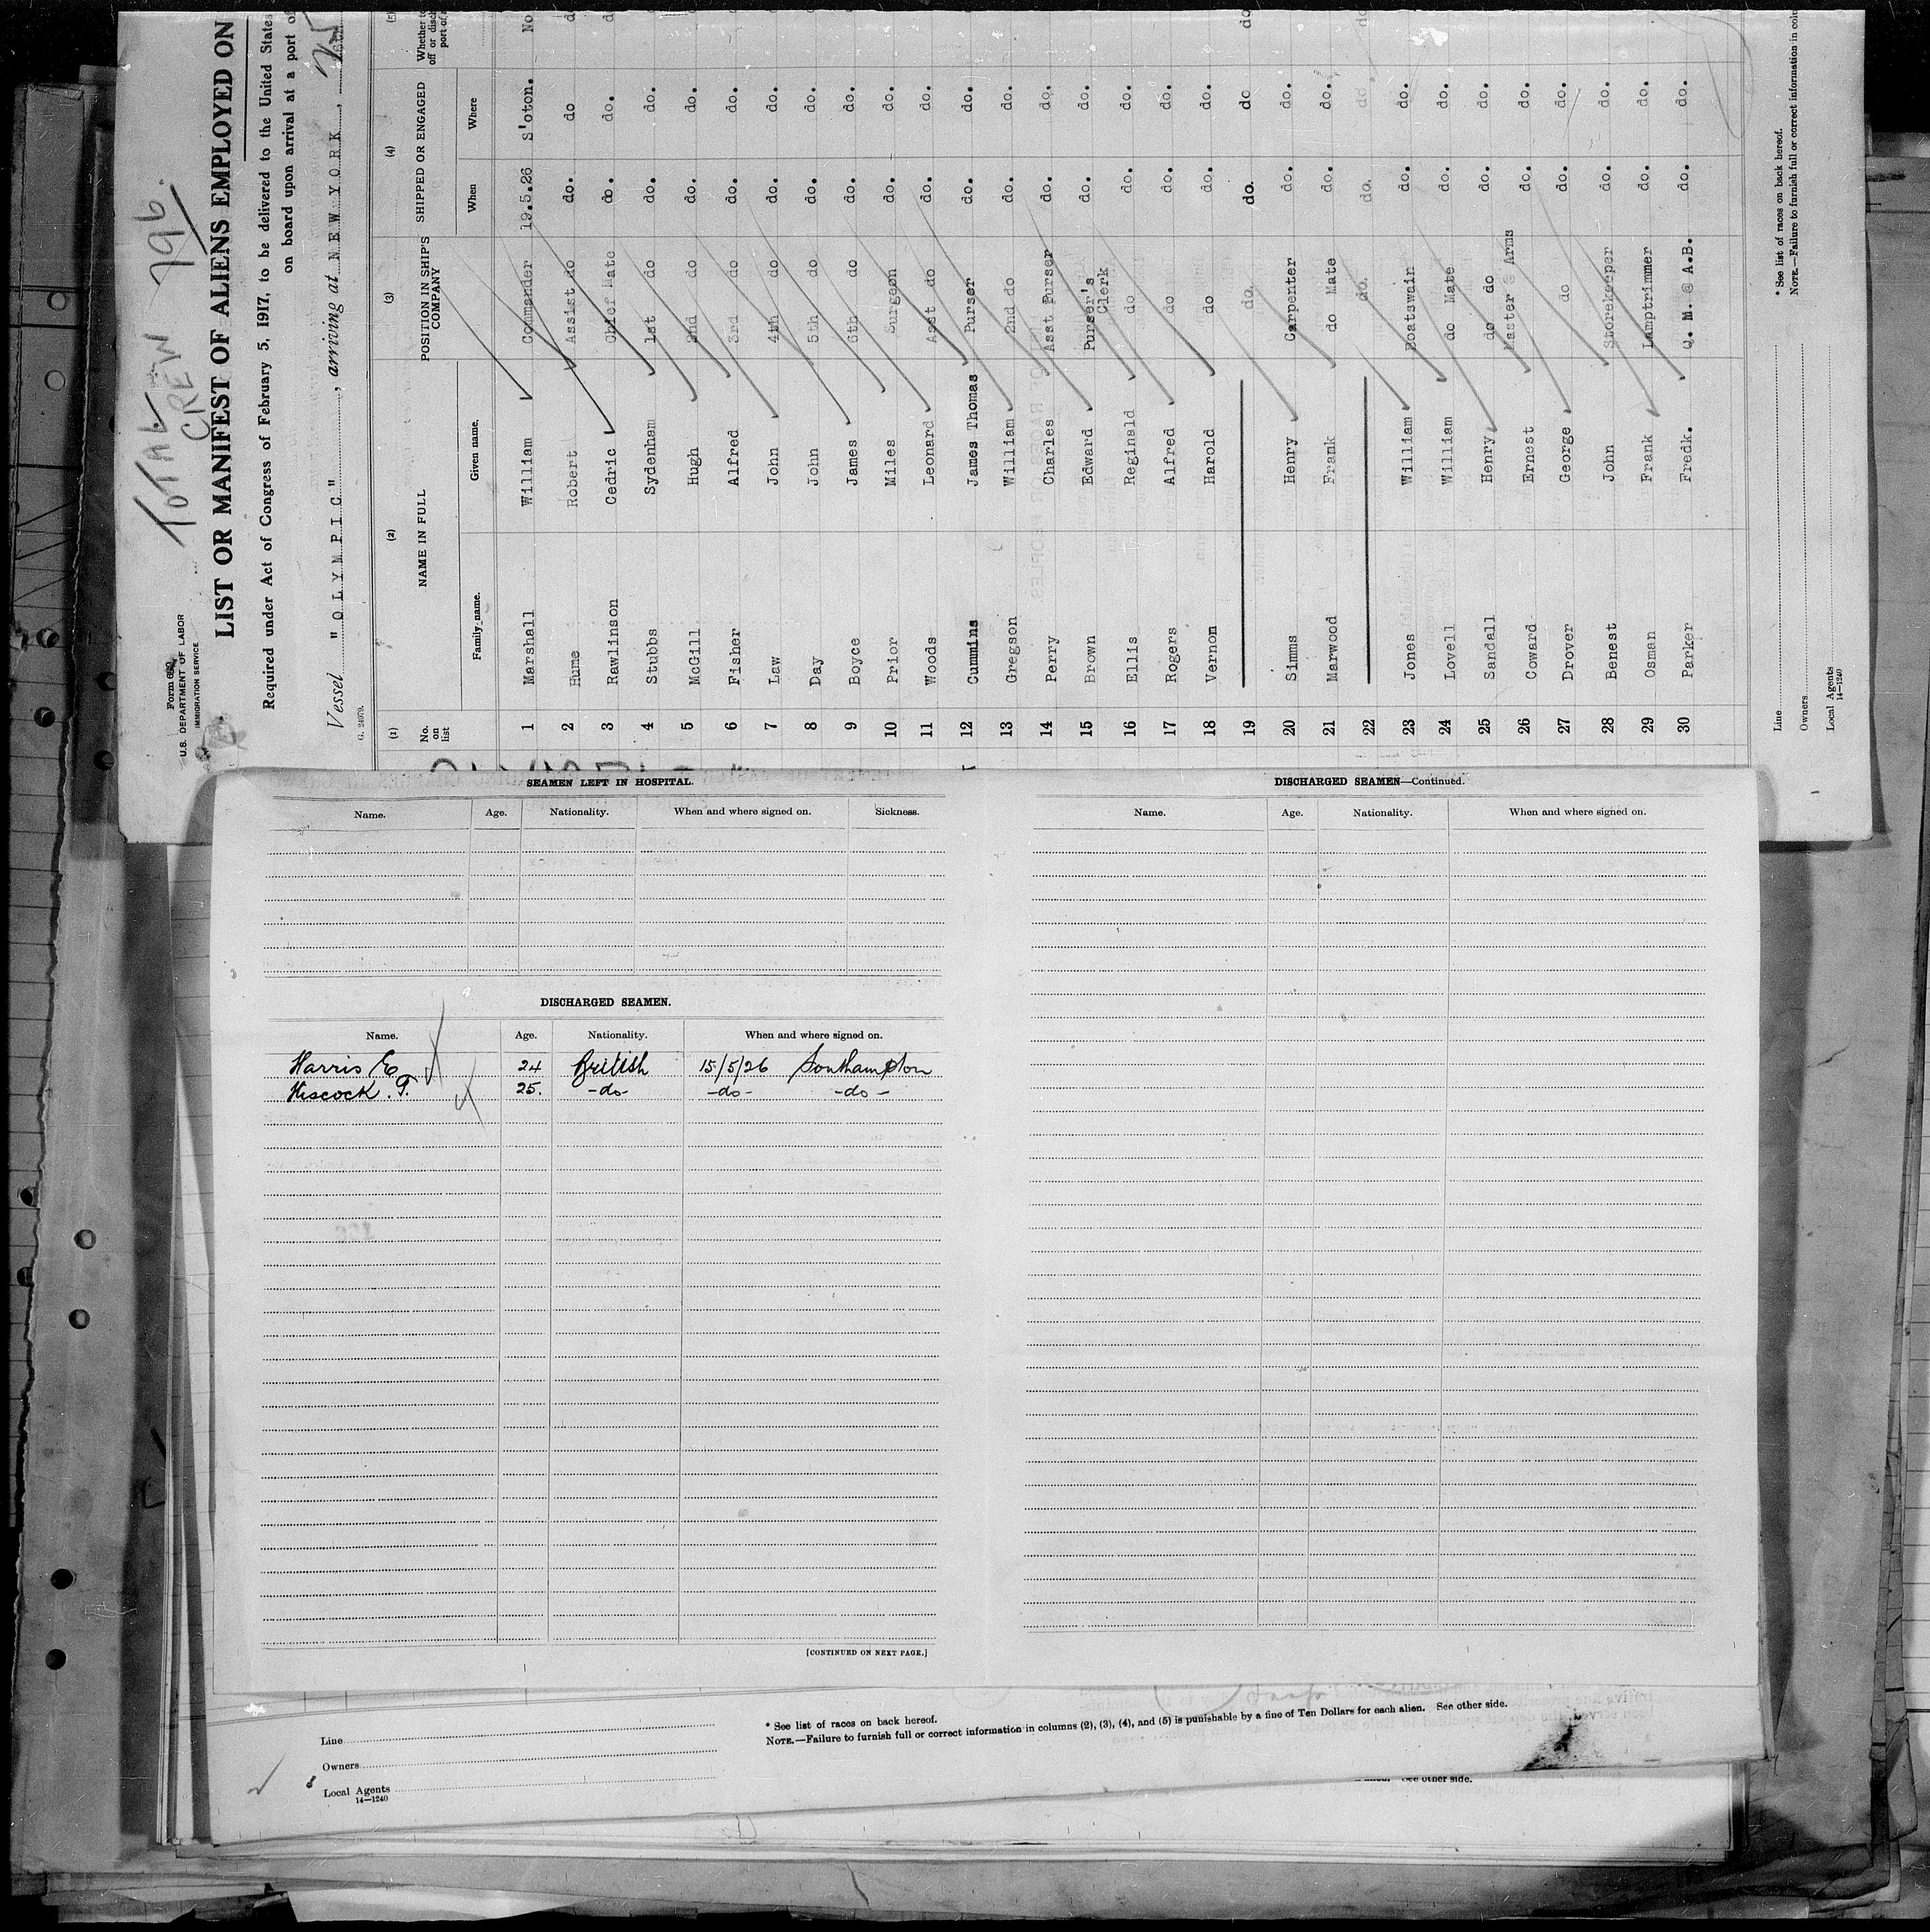 TOTAL CREW 796.
Form 680
U.S. DEPARTMENT OF LABOR
IMMIGRATION SERVICE
LIST OR MANIFEST OF ALIENS EMPLOYED ON
Required under Act of Congress of February 5, 1917, to be delivered to the United States
on board upon arrival at a port of
Vessel "OLYMPIC", arriving at NEW YORK,
G. 24979.
(1) (2) (3) (4) (5)
No. on list NAME IN FULL POSITION IN SHIP'S COMPANY SHIPPED OR ENGAGED
Family name. Given name. When Where
1 Marshall William Commander 19.5.26 S'oton. No
2 Hume Robert Assist do do. do do
3 Rawlinson Cedric Chief Mate do. do. d
4 Stubbs Sydenham 1st do do. do.
5 McGill Hugh 2nd do do. do.
6 Fisher Alfred 3rd do do. do.
7 Law John 4th do do. do.
8 Day John 5th do do. do.
9 Boyce James 6th do do. do.
10 Prior Miles Surgeon do. do.
11 Woods Leonard Asst do do. do.
12 Cummins James Thomas Purser do. do.
13 Gregson William 2nd do do. do.
14 Perry Charles Asst Purser do. do.
15 Brown Edward Purser's Clerk do. do.
16 Ellis Reginald do do. do.
17 Rogers Alfred do do. do.
18 Vernon Harold do do. do.
19 do. do. do do
20 Simms Henry Carpenter do. do.
21 Marwood Frank do Mate do. do.
22 do. do. do. do
23 Jones William Boatswain do. do.
24 Lovell William do Mate do. do.
25 Sandall Henry do do do. do.
26 Coward Ernest Master @ Arms do. do.
27 Drover George do do. do.
28 Benest John Storekeeper do. do.
29 Osman Frank Lamptrimmer do. do.
30 Parker Fredk. Q. M. @ A.B. do. do.
* See list of races on back hereof.
NOTE.—Failure to furnish full or correct information in colu
Line
Owners
Local Agents
14—1240
SEAMEN LEFT IN HOSPITAL.
Name. Age. Nationality. When and where signed on. Sickness.
DISCHARGED SEAMEN.
Name. Age. Nationality. When and where signed on.
Harris E 24 British 15/5/26 Southampton
Hiscock. T. 25. -do- -do- -do-
[CONTINUED ON NEXT PAGE.]
DISCHARGED SEAMEN—Continued.
Name. Age. Nationality. When and where signed on.
* See list of races on back hereof.
NOTE.—Failure to furnish full or correct information in columns (2), (3), (4), and (5) is punishable by a fine of Ten Dollars for each alien. See other side.
Line
Owners
Local Agents
14—1240
See other side.